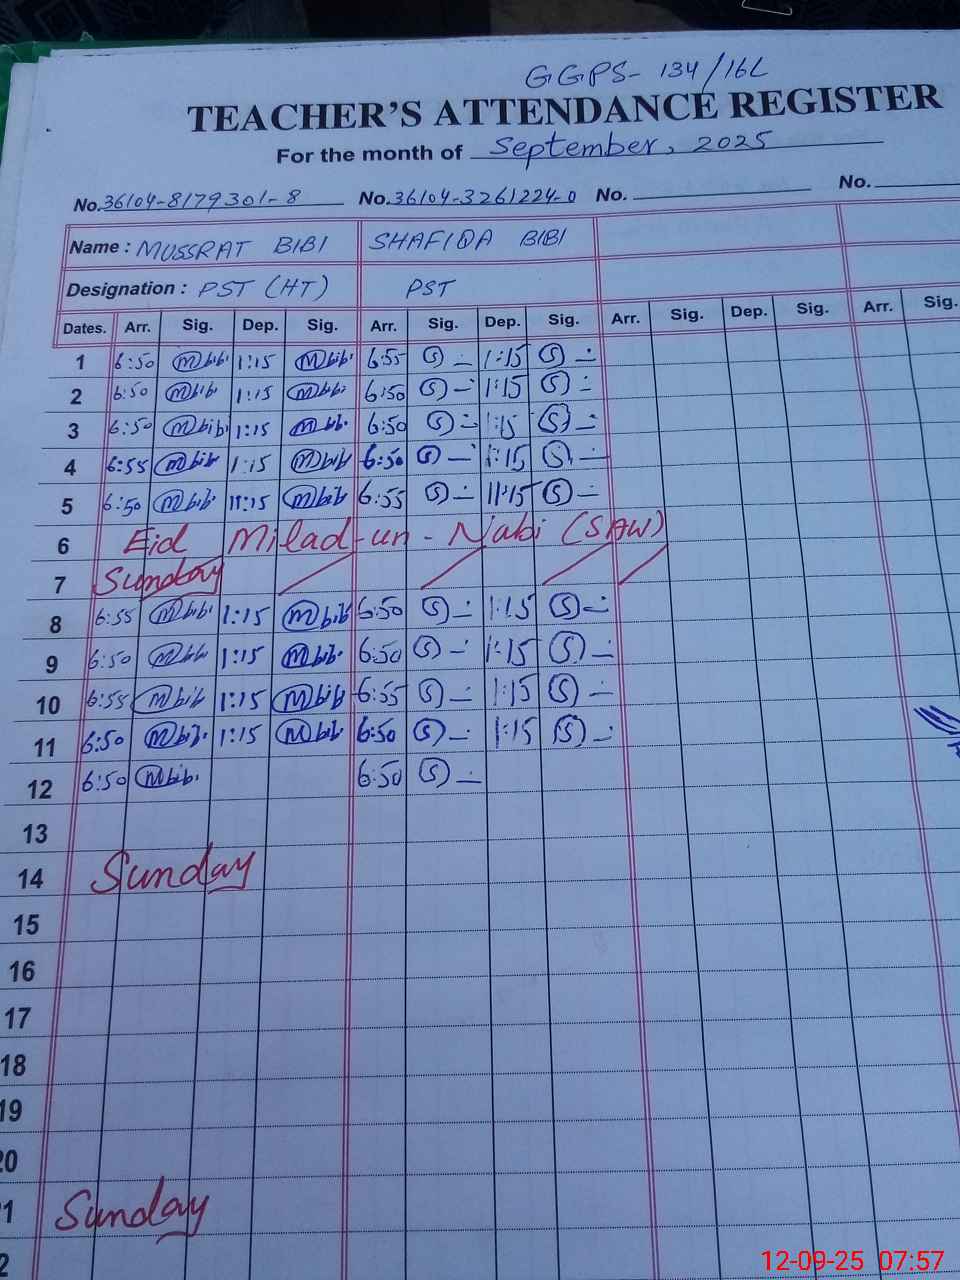 GGPS- 134/16L
TEACHER'S ATTENDANCE REGISTER
For the month of September, 2025
No. 36104-8179301-8 No. 36104-3261224-0 No. No.
Name : MUSSRAT BIBI SHAFIQA BIBI
Designation : PST (HT) PST
Dates. Arr. Sig. Dep. Sig. Arr. Sig. Dep. Sig. Arr. Sig. Dep. Sig. Arr. Sig.
1 6:50 Mbibi 1:15 Mbibi 6:55 S 1:15 S
2 6:50 Mbibi 1:15 Mbibi 6:50 S 1:15 S
3 6:50 Mbibi 1:15 Mbibi 6:50 S 1:15 S
4 6:55 Mbibi 1:15 Mbibi 6:50 S 1:15 S
5 6:50 Mbibi 11:15 Mbibi 6:55 S 11:15 S
6 Eid Milad-un-Nabi (SAW)
7 Sunday
8 6:55 Mbibi 1:15 Mbibi 6:50 S 1:15 S
9 6:50 Mbibi 1:15 Mbibi 6:50 S 1:15 S
10 6:55 Mbibi 1:15 Mbibi 6:55 S 1:15 S
11 6:50 Mbibi 1:15 Mbibi 6:50 S 1:15 S
12 6:50 Mbibi 6:50 S
13
14 Sunday
15
16
17
18
19
20
1 Sunday
2
12-09-25 07:57